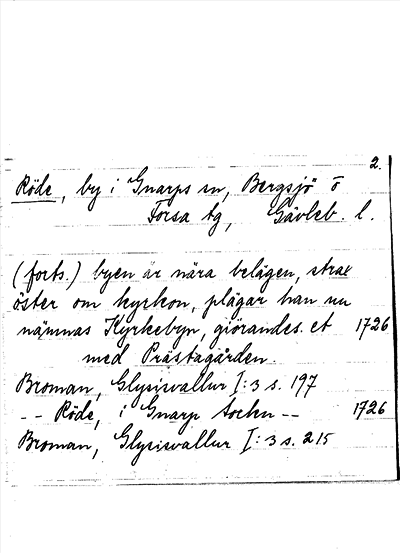 2.
Röde, by i Gnarps sn, Bergsjö o
Forsa tg, Gävleb. l.
(forts.) byen är nära belägen, strax
öster om kyrkon, plägar han nu
nämnas Kyrkebyn, giörandes et 1726
med Prästagården
Broman, Glysisvallur I:3 s. 197
-- Röde, i Gnarp sochn -- 1726
Broman, Glysisvallur I:3 s. 215